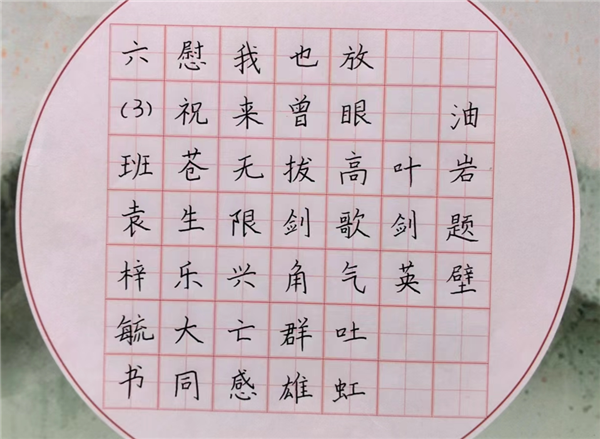 油岩题壁
叶剑英
放眼高歌气吐虹
也曾拔剑角群雄
我来无限兴亡感
慰祝苍生乐大同
六(3)班袁梓毓书